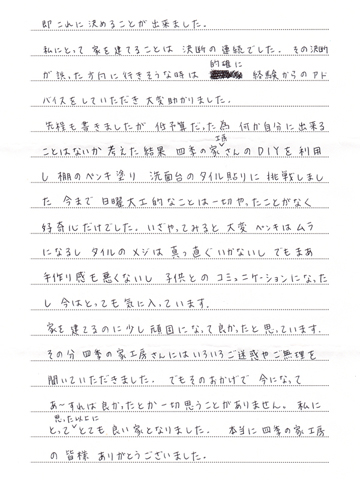 即これに決めることが出来ました。
私にとって 家を建てることは 決断の連続でした。その決断
が誤った方向に行きそうな時は 的確に 経験からのアド
バイスをしていただき大変助かりました。
先程も書きましたが 低予算だった為 何か自分に出来る
ことはないか考えた結果 四季の家工房さんのDIYを利用
し 棚のペンキ塗り 洗面台のタイル貼りに挑戦しまし
た 今まで日曜大工的なことは一切やったことがなく
好奇心だけでした。いざやってみると大変 ペンキはムラ
になるし タイルのメジは真っ直ぐいかないし でもまあ
手作り感も悪くないし 子供とのコミュニケーションになった
し 今はとっても気に入っています。
家を建てるのに少し頑固になって良かったと思っています。
その分 四季の家工房さんにはいろいろご迷惑やご無理を
聞いていただきました。でもそのおかげで 今になって
あーすれば良かったとか一切思うことがありません。私に
とって思った以上にとても良い家となりました。 本当に四季の家工房
の皆様 ありがとうございました。